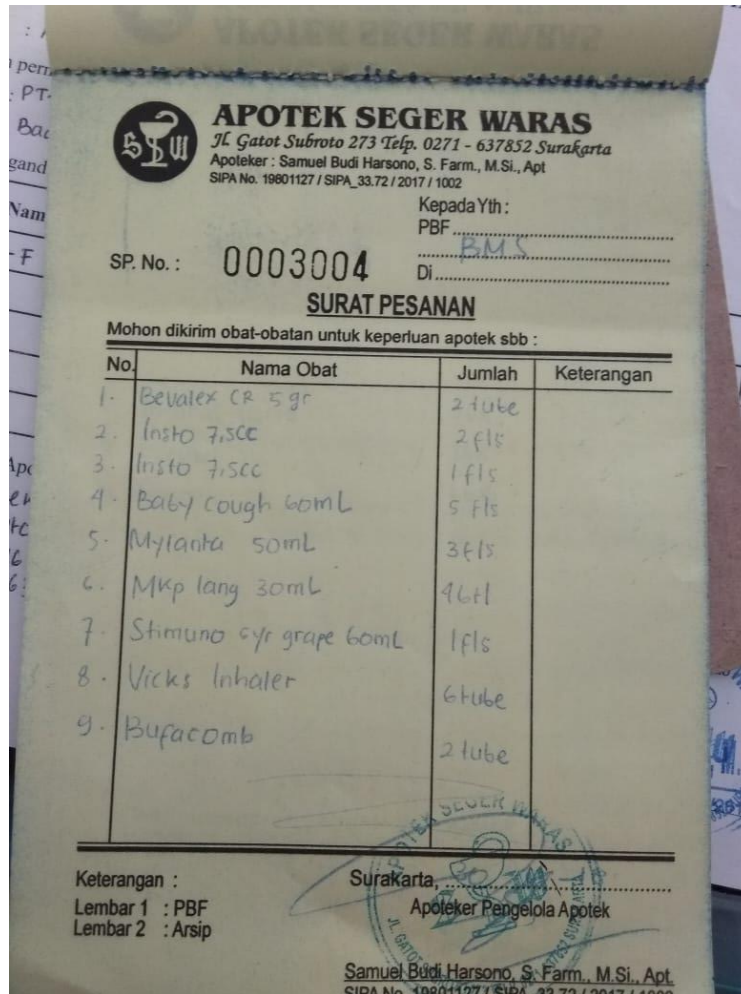 APOTEK SEGER WARAS
Jl. Gatot Subroto 273 Telp. 0271 - 637852 Surakarta
Apoteker : Samuel Budi Harsono, S. Farm., M.Si., Apt
SIPA No. 19801127 / SIPA_33.72 / 2017 / 1002
Kepada Yth :
PBF
BMS
SP. No. : 0003004 Di
SURAT PESANAN
Mohon dikirim obat-obatan untuk keperluan apotek sbb :
No. Nama Obat Jumlah Keterangan
1. Bevalex CR 5 gr 2 tube
2. Insto 7,5cc 2 fls
3. Insto 7,5cc 1 fls
4. Baby cough 60mL 5 fls
5. Mylanta 50mL 3 fls
6. Mkp lang 30mL 4 btl
7. Stimuno syr grape 60mL 1 fls
8. Vicks Inhaler 6 tube
9. Bufacomb 2 tube
Keterangan : Surakarta,
Lembar 1 : PBF Apoteker Pengelola Apotek
Lembar 2 : Arsip
Samuel Budi Harsono, S. Farm., M.Si., Apt.
SIPA No. 19801127 / SIPA_33.72 / 2017 / 1002